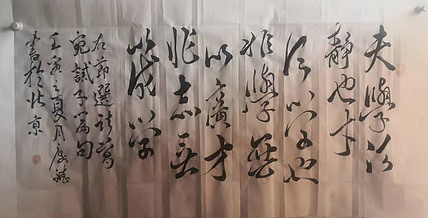 夫學須
靜也才
須學也
非學無
以廣才
非志無
以成學
右節選諸葛
誡子篇句
壬寅之夏月
書於北京